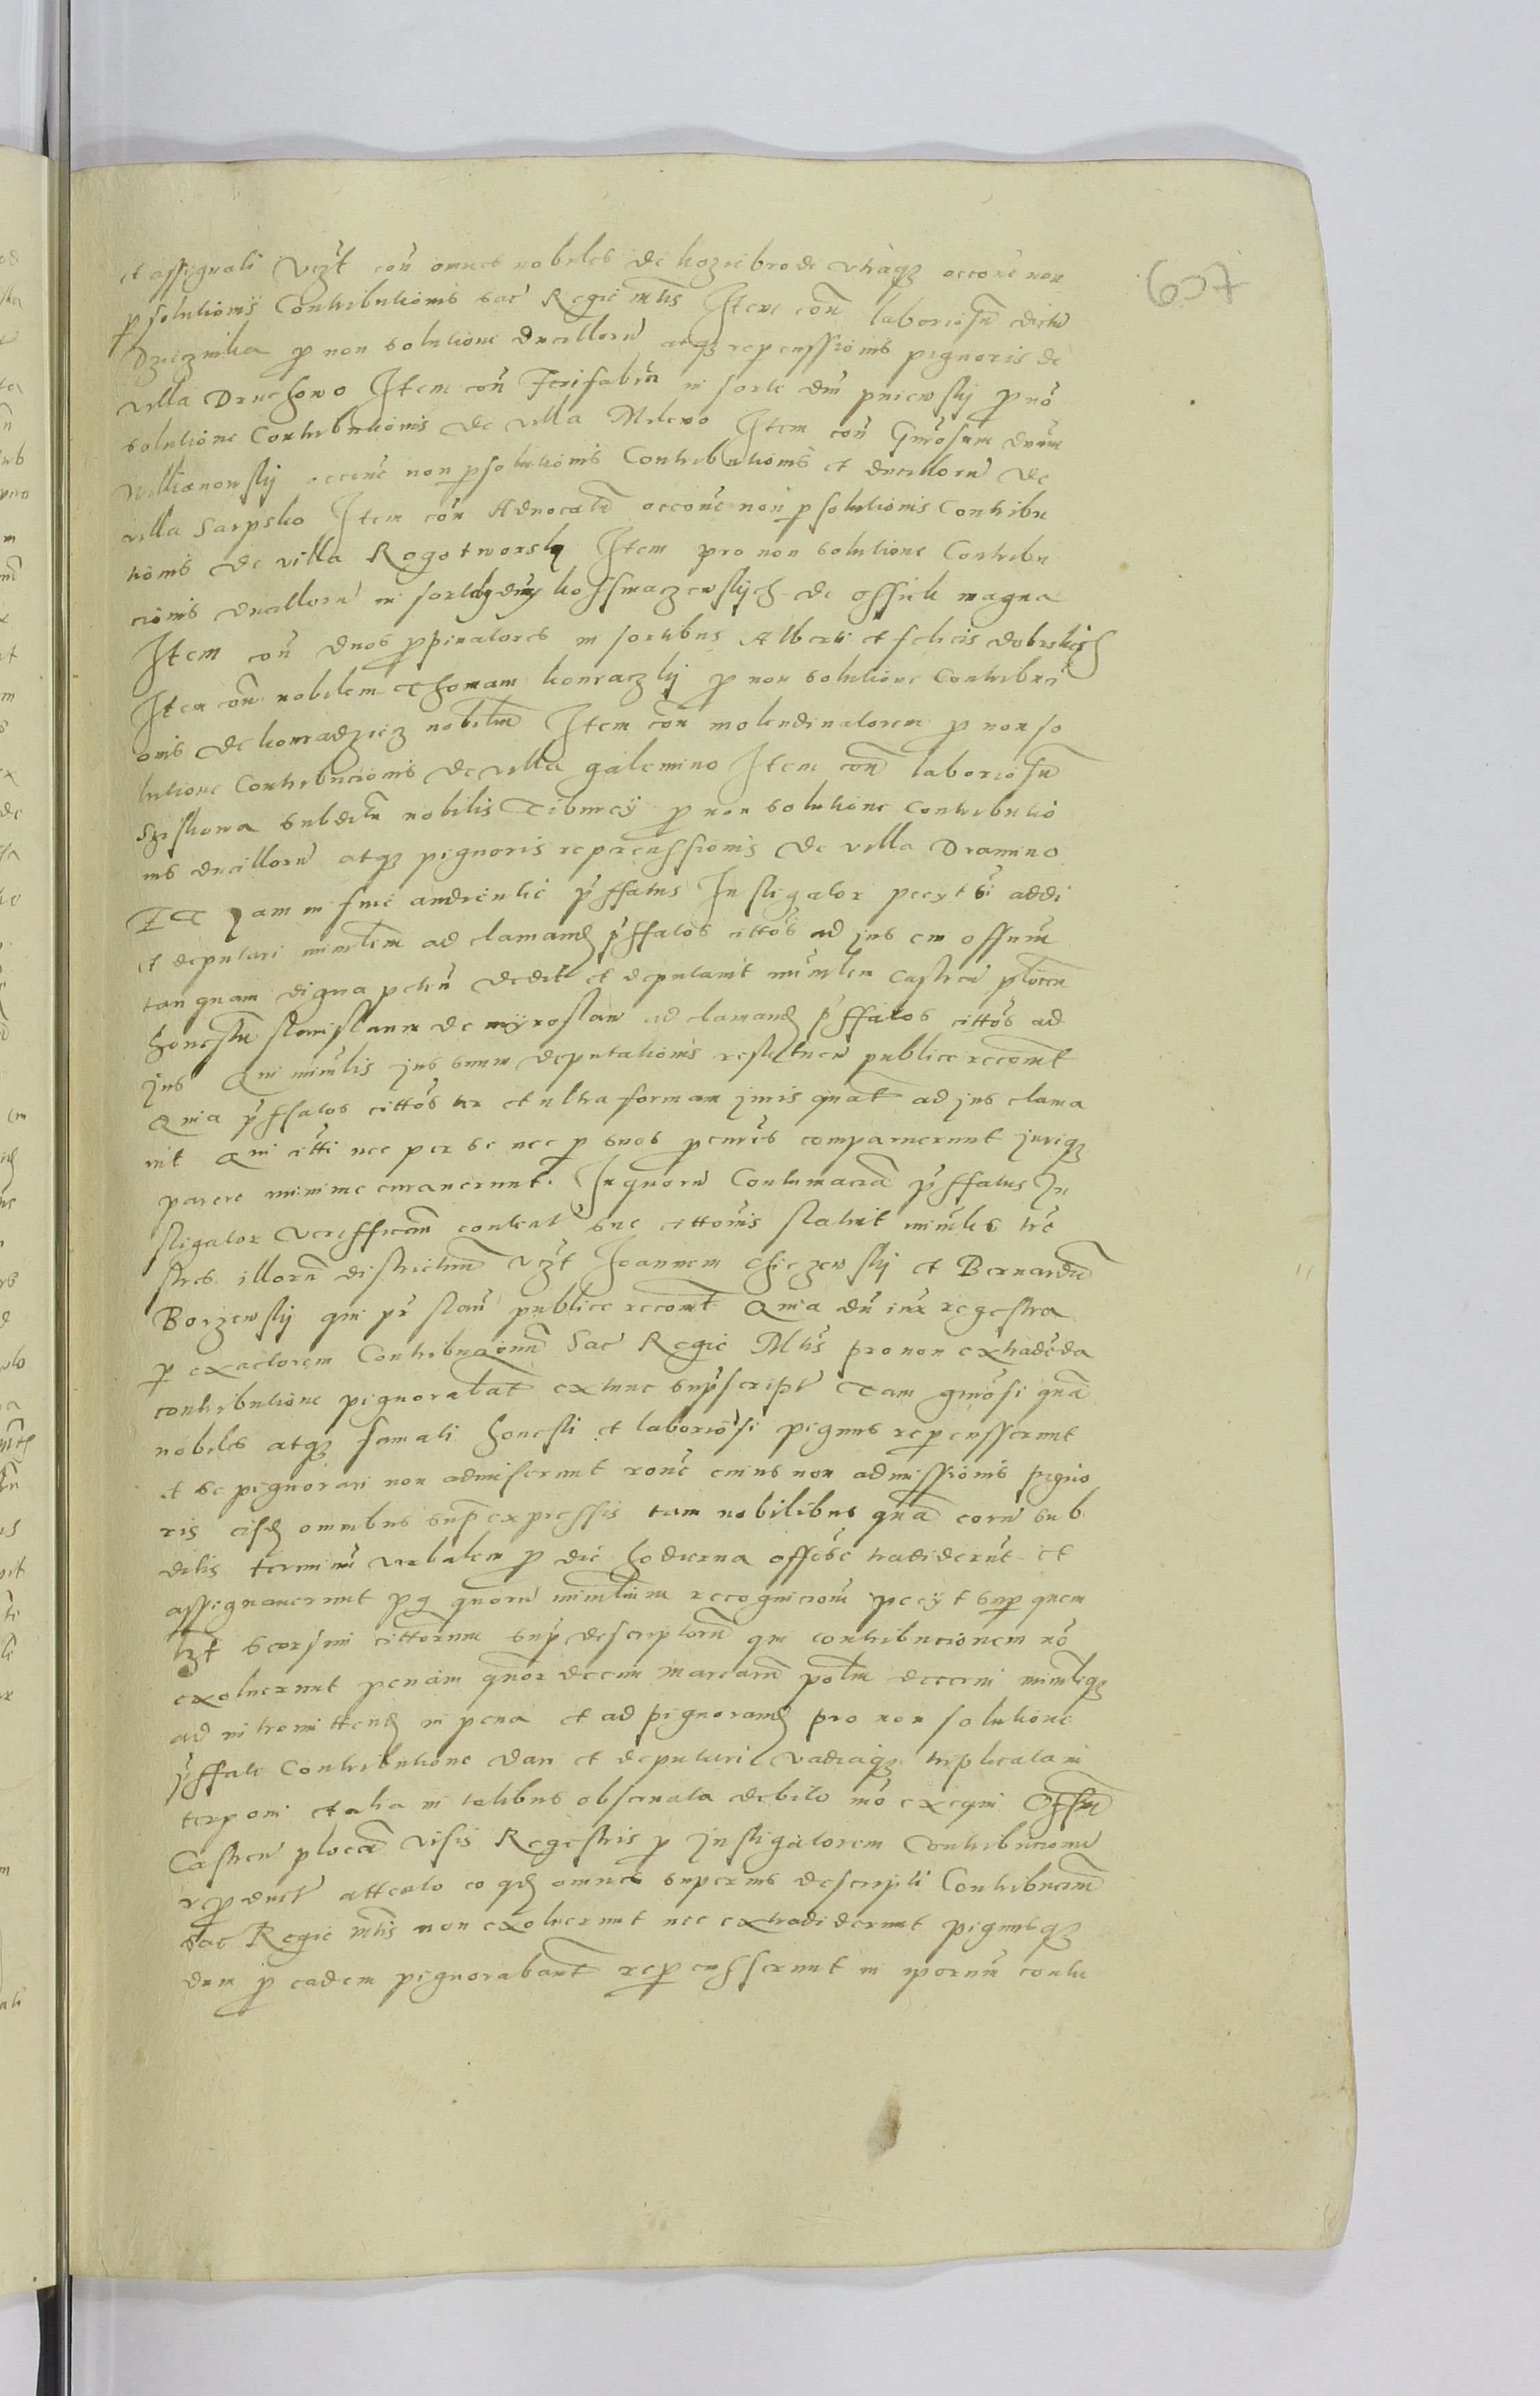 607
et assignati vczt con omnes nobiles de koziebrodi vtràqz occone non
psolutionis Contributionis sac Regie mtis Item con laboriosu dictu
Dzieznika p non solutione ducilloru atqz repercussionis pignoris de
villa Druchowo Item con ferifabru in sorte dni pniewskj p nõ
solutione Contributionis de villa Milewo Item con Gnrosum dnum
occone non psolutionis Contributionis et ducilloru de
villa Sarpsko Item con Advocatu occone non psolutionis Contribu
tionis de villa Rogotworsk Item pro non solutione Contribu
cionis ducilloru in de Ossiek magna
Item con duos ppinatores in sortibus Alberti et felicis dobrskich
Item con nobilem Thomam konraczkj p non solutione Contribuci
onis de konradziecz nobiliu Item con molendinatorem p non so
lutione Contribucionis de villa galemino Item con laboriosu
subditu nobilis Tiburcÿ p non solutione Contributio
nis ducilloru atqz pignoris repercussionis de villa Dramino
ET Jam in fine audientie pffatus Instigator pecyt si addi
et deputari minrlem ad clamand pffatos cittos ad jus cu offium
tanquam digna petens dedit et deputavit minrlem Castren plocen
honestu stanislaum de myroslaw ad clamand pffatos cittos ad
jus Qui minrlis jus suum deputationis restituen publice recomt
Quia pffatos cittos ter et ultra formam juris quat ad jus clama
vit Qui citti nec per se nec p suos pcures comparuerunt juriqz
parere minime curauerunt. In quoru Contumacia pffatus In
stigator verifficam content sue cittonis statuit minrles tre
stres illoru districtuum vczt Joannem Chiczewskj et Bernardu
Borzewskj qui pr stan publice recomt Quia du iux regestra
p exactorem Contribucionu Sac Regie Mtis pro non extradenda
contributione pignorabat extunc supscript Tam gnrosi qua
nobiles atqz famati honesti et laboriosi pignus repercusserunt
et se pignorari non admiserunt rone cuius non admissionis pigno
ris eisd omnibus sup expressis tam nobilibus qua eoru sub
ditis terminu verbalem p die hodierna offose tradiderut et
assignauerunt pq quoru minrlium recognicione pecyt sup quem
lzt seorsim cittorum sup descriptoru qui contribucionem nõ
exoluerunt penam quor decim marcaru polm decerni minrleqz
ad intromittend in pena et ad pignorand pro non solutione
pffate Contributione dari et deputari vadiaqz triplicata in
terponi et alia in talibus obseruata debito mõ exequi Offm
Castren plocen visis Regestris p Instigatorem Contribucionu
rpduct attento eo qd omnes superius descripti Contribucionem
sac Regie mtis non exoluerunt nec extradiderunt pignusqz
dum p eadem pignorabant repercusserunt in iporum contu